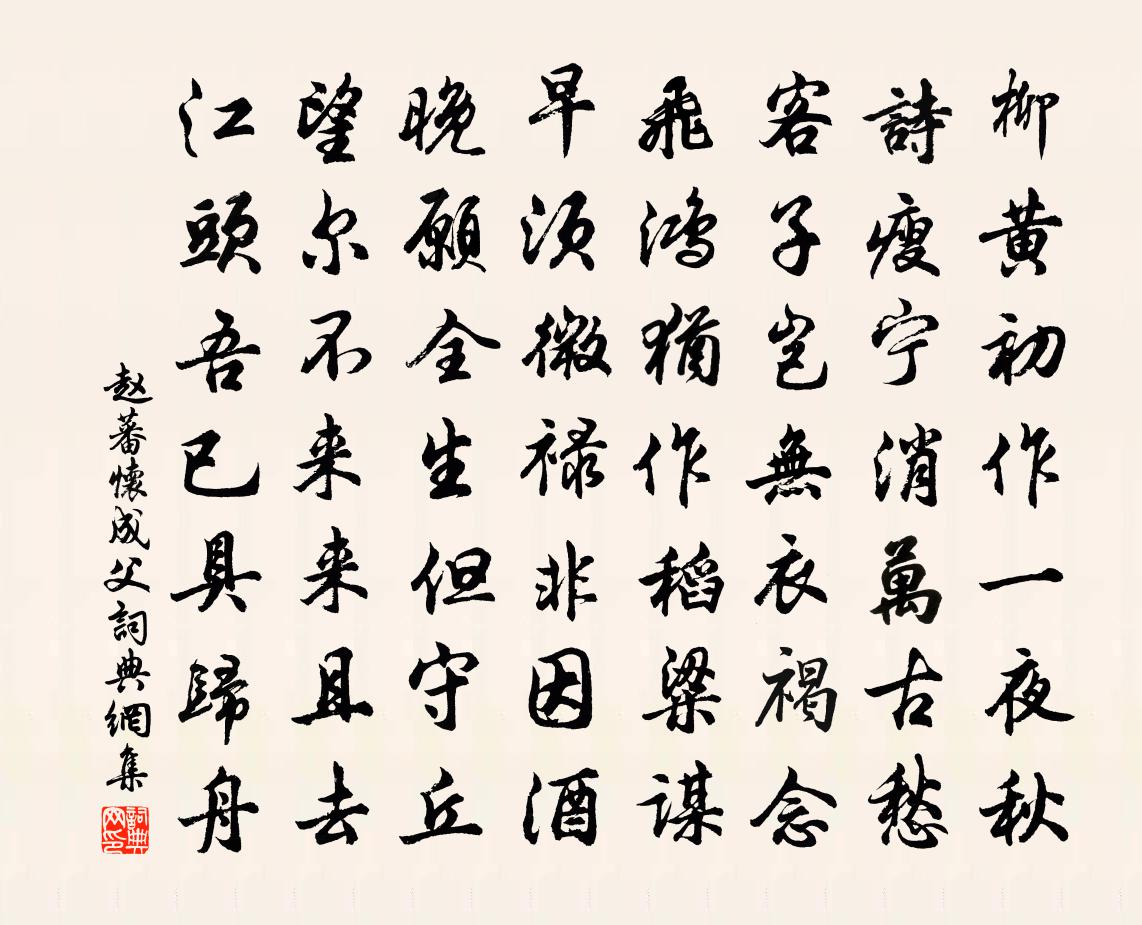 柳黄初作一夜秋
詩瘦宁消萬古愁
客子岂無衣褐念
飛鴻猶作稻粱谋
早须微禄非因酒
晚願全生但守丘
望尔不来来且去
江頭吾已具歸舟
赵蕃懷成父詞典網集
詞典網印